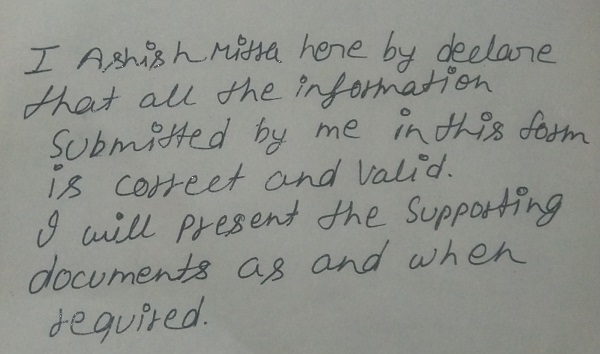 I Ashish Mitra here by declare
that all the information
Submitted by me in this form
is correct and valid.
I will present the supporting
documents as and when
required.